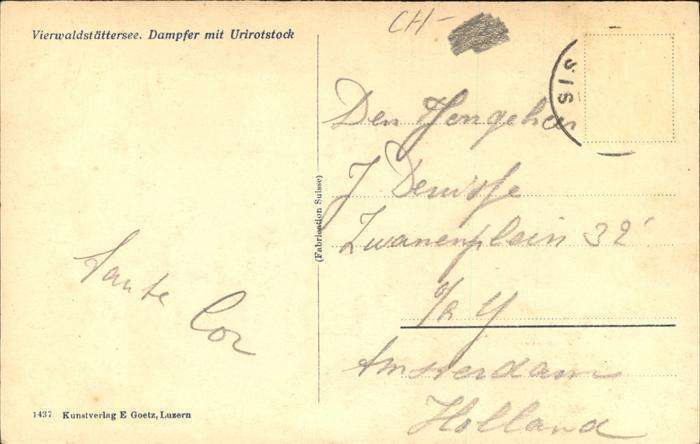 Vierwaldstättersee. Dampfer mit Urirotstock
CH-
SIS
(Fabrication Suisse)
Den Jongeheer
J
Zwanenplein 32'
a/d Y
Amsterdam
Holland
Tante
Cor
1437 Kunstverlag E Goetz, Luzern